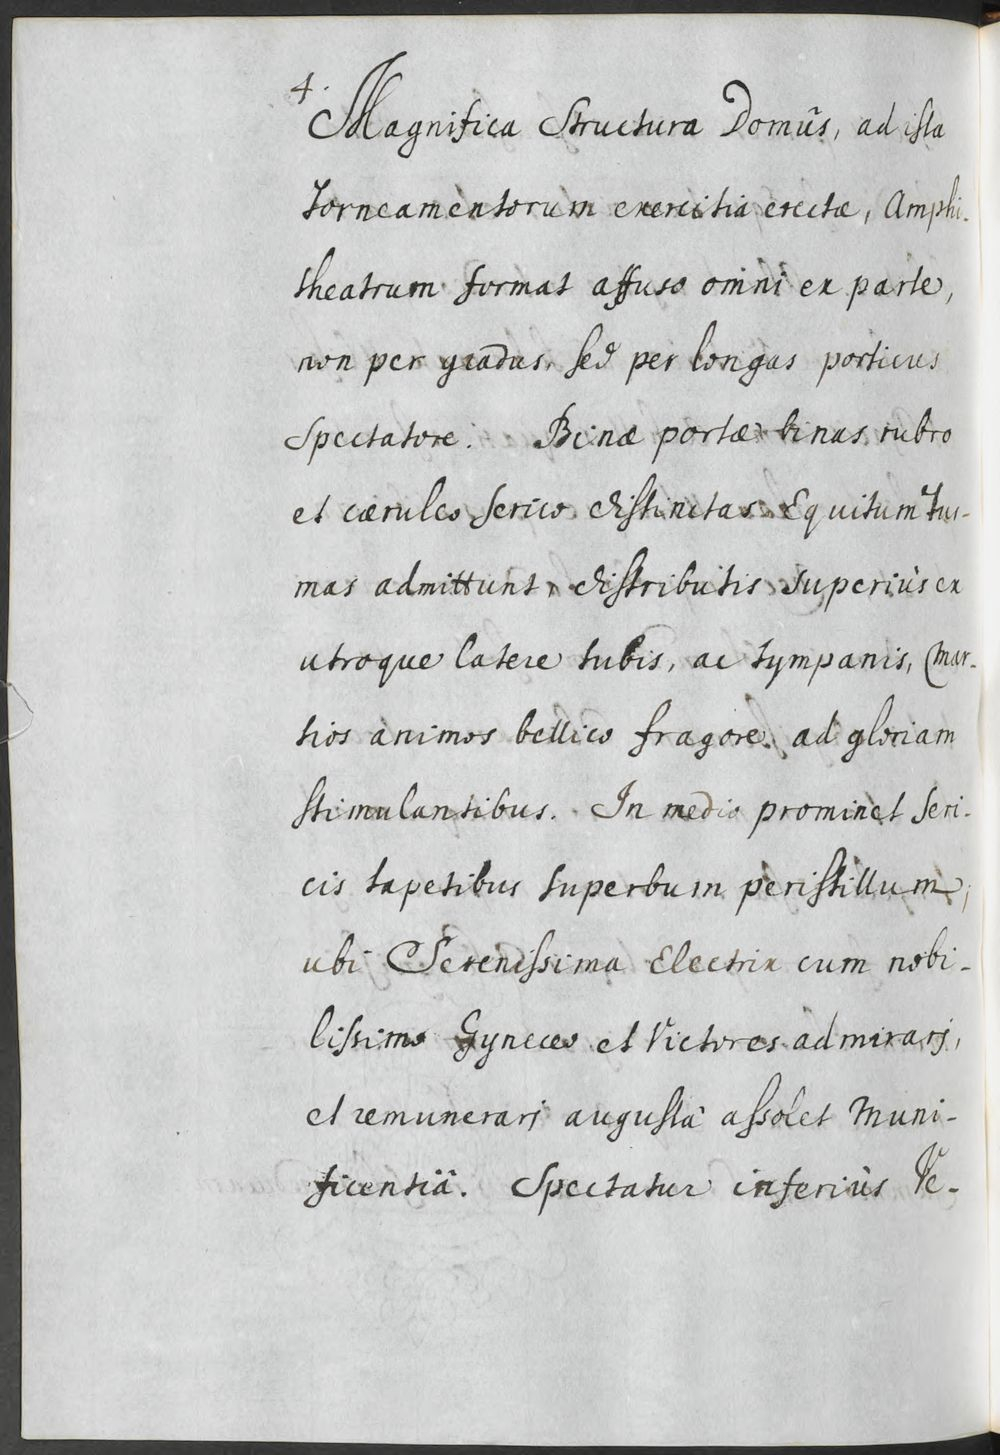 4.
Magnifica Structura Domûs, ad ista
Torneamentorum exercitia erectæ, Amphi-
theatrum format affuso omni ex parte,
non per gradus, sed per longas porticus
Spectatore. Binæ portæ binas rubro
et cæruleo serico distinctas Equitum Tur-
mas admittunt, distributis superiùs ex
utroque latere tubis, ac tympanis, Mar-
tios animos bellico fragore ad gloriam
stimulantibus. In medio prominet seri-
cis tapetibus superbum peristillum,
ubi Serenissima Electrix cum nobi-
lissimo Gyneceo et Victores admirarj,
et remunerarj augustâ assolet Muni-
ficentiâ. Spectatur inferiùs Ve-